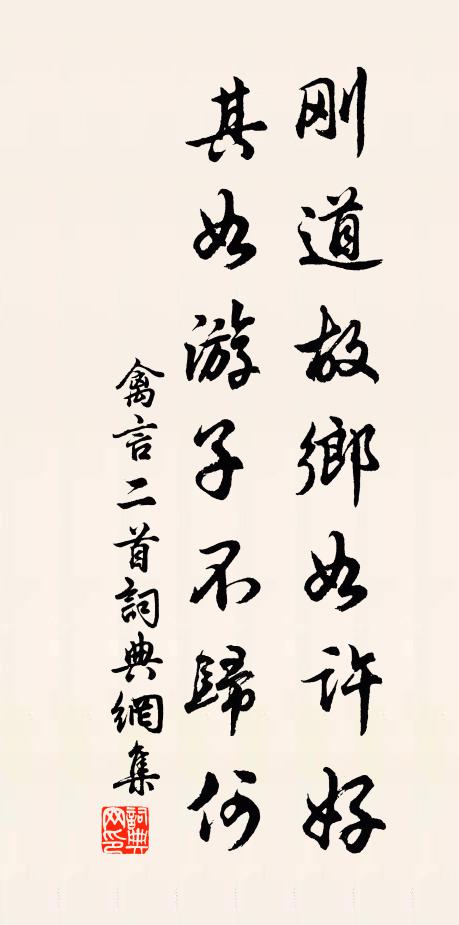 刚道故鄉如许好
其如游子不歸何
禽言二首詞典網集
詞典网印